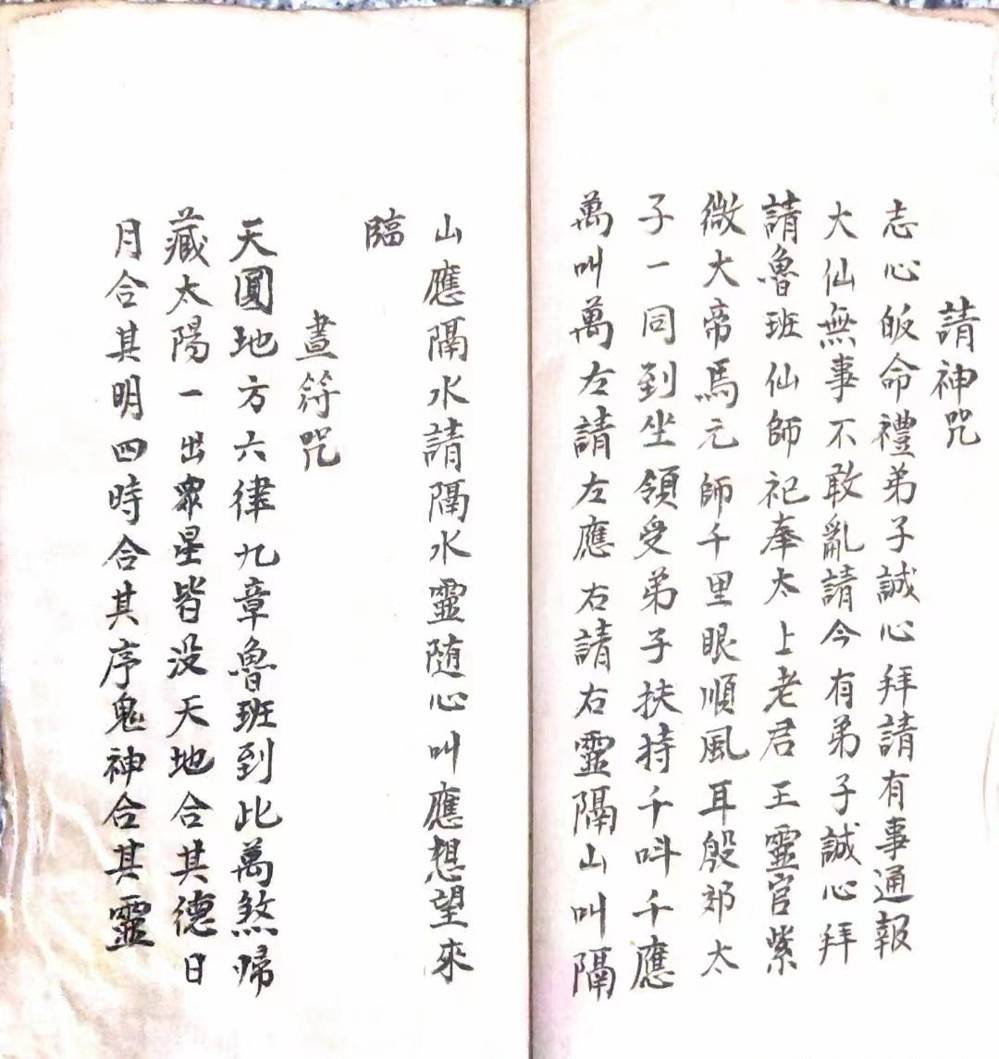 請神咒
志心皈命禮弟子誠心拜請有事通報
大仙無事不敢亂請今有弟子誠心拜
請魯班仙師祀奉太上老君王靈官紫
微大帝馬元師千里眼順風耳殷郊太
子一同到坐領受弟子扶持千呌千應
萬叫萬左請左應右請右靈隔山叫隔
山應隔水請隔水靈随心叫應想望來
臨
晝符咒
天圓地方六律九章魯班到此萬煞歸
藏太陽一出眾星皆没天地合其德日
月合其明四時合其序鬼神合其靈